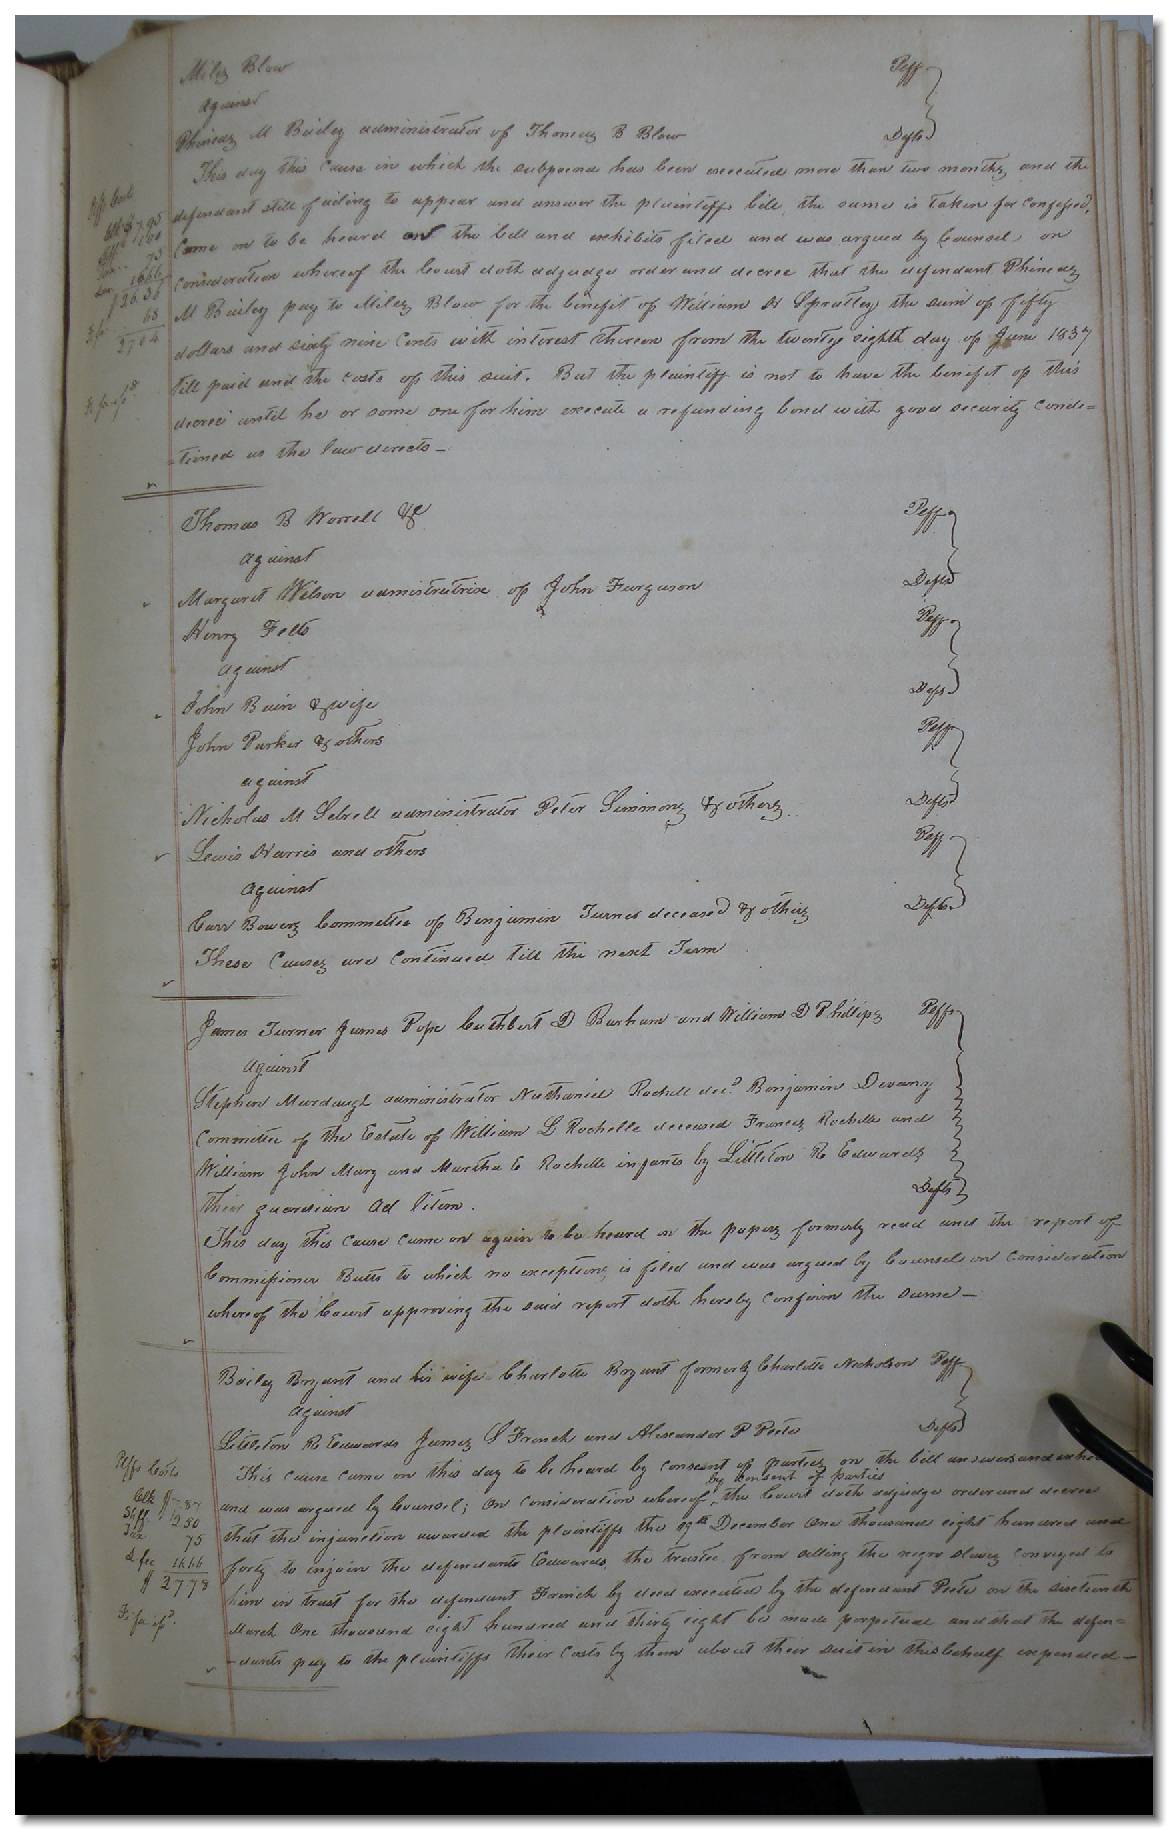 Miles Blow Plff
against
Phineas M Bailey administrator of Thomas B Blow Deft
This day this cause in which the subpoena has been executed more than two months and the
defendant still failing to appear and answer the plaintiffs bill the same is taken for confessed,
Came on to be heard on the bill and exhibits filed and was argued by Counsel on
consideration whereof the Court doth adjudge order and decree that the defendant Phineas
M Bailey pay to Miles Blow for the benefit of William H Spratley the sum of fifty
dollars and sixty nine Cents with interest thereon from the twenty eighth day of June 1837
till paid and the costs of this suit. But the plaintiff is not to have the benefit of this
decree until he or some one for him execute a refunding bond with good security condi=
=tioned as the law directs_
Thomas B Worrell &c Plff
against
Margaret Wilson administratrix of John Furguson Deft
Henry Felts Plff
against
John Bain & wife Defts
John Parker & others Plff
against
Nicholas M Sebrell administrator Peter Simmons & others Defts
Lewis Harris and others Plff
against
Carr Bowers Committee of Benjamin Turner deceased & others Defts
These Causes are Continued till the next Term
James Turner James Pope Cuthbert D Barham and William D Phillips Plffs
against
Stephen Murdaugh administrator Nathaniel Rochell decd. Benjamin Devany
Committee of the Estate of William L Rochelle deceased Frances Rochelle and
William John Mary and Martha E Rochelle infants by Littleton R Edwards
their guardian Ad litem. Defts
This day this cause came on again to be heard on the papers formerly read and the report of
Commissioner Butts to which no exceptions is filed and was argued by Counsel on Consideration
whereof the Court approving the said report doth hereby confirm the same_
Bailey Bryant and his wife Charlotte Bryant formerly Charlotte Nicholson Plff
against
Littleton R Edwards James S French and Alexander P Peete Defts
Plffs Costs
Clk $7.87
Shff 2 50
Tax 75
L fee 16.66
$ 27.78
Fi fa isd.
This cause came on this day to be heard by consent of parties on the bill answers and
by consent of parties
and was argued by Counsel; On consideration whereof the Court doth adjudge order and decree
that the injunction awarded the plaintiffs the 19th December One thousand eight hundred and
forty to injoin the defendants Edwards, the trustee from selling the negro slaves conveyed to
him in trust for the defendant French by deed executed by the defendant Peete on the sixteenth
March One thousand eight hundred and thirty eight be made perpetual and that the defen=
=dants pay to the plaintiffs their Costs by them about their suit in this behalf expended_